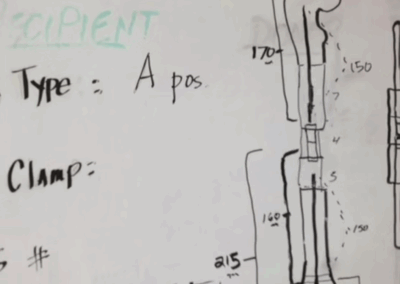 RECIPIENT
Type: A pos.
Clamp:
#
170
150
7
4
5
160
150
215